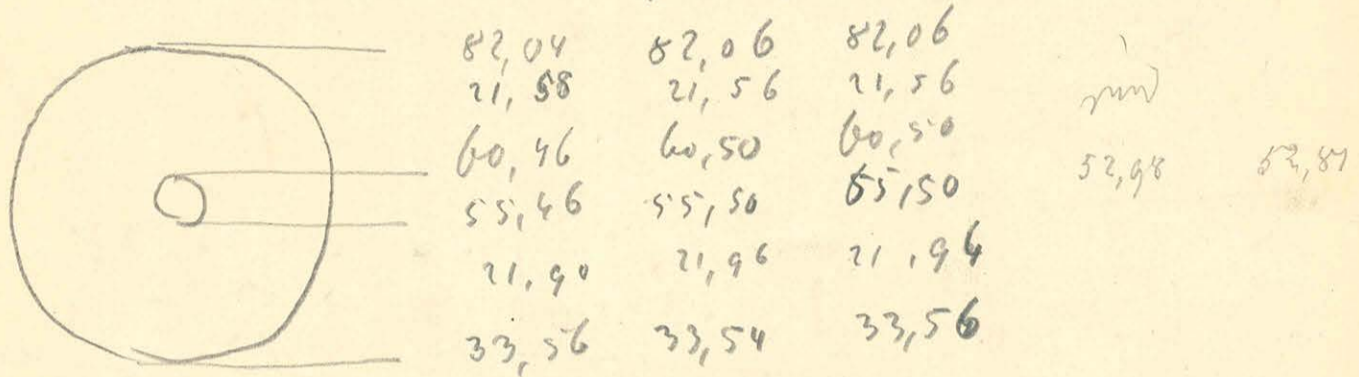 82,04 82,06 82,06
21,58 21,56 21,56
60,46 60,50 60,50
55,46 55,50 55,50
52,98 52,81
21,90 21,96 21,94
33,56 33,54 33,56